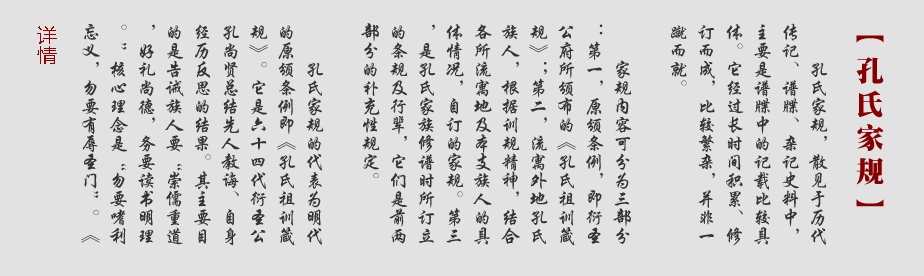 【孔氏家规】
孔氏家规，散见于历代
传记、谱牒、杂记史料中，
主要是谱牒中的记载比较具
体。它经过长时间积累、修
订而成，比较繁杂，并非一
蹴而就。
家规内容可分为三部分
：第一，原颁条例，即衍圣
公府所颁布的《孔氏祖训箴
规》；第二，流寓外地孔氏
族人，根据训规精神，结合
各所流寓地及本支族人的具
体情况，自订的家规。第三
，是孔氏家族修谱时所订立
的条规及行辈，它们是前两
部分的补充性规定。
孔氏家规的代表为明代
的原颁条例即《孔氏祖训箴
规》。它是六十四代衍圣公
孔尚贤总结先人教诲、自身
经历反思的结果。其主要目
的是告诫族人要“崇儒重道
，好礼尚德，务要读书明理
。”核心理念是“勿要嗜利
忘义，勿要有辱圣门”。《
详情